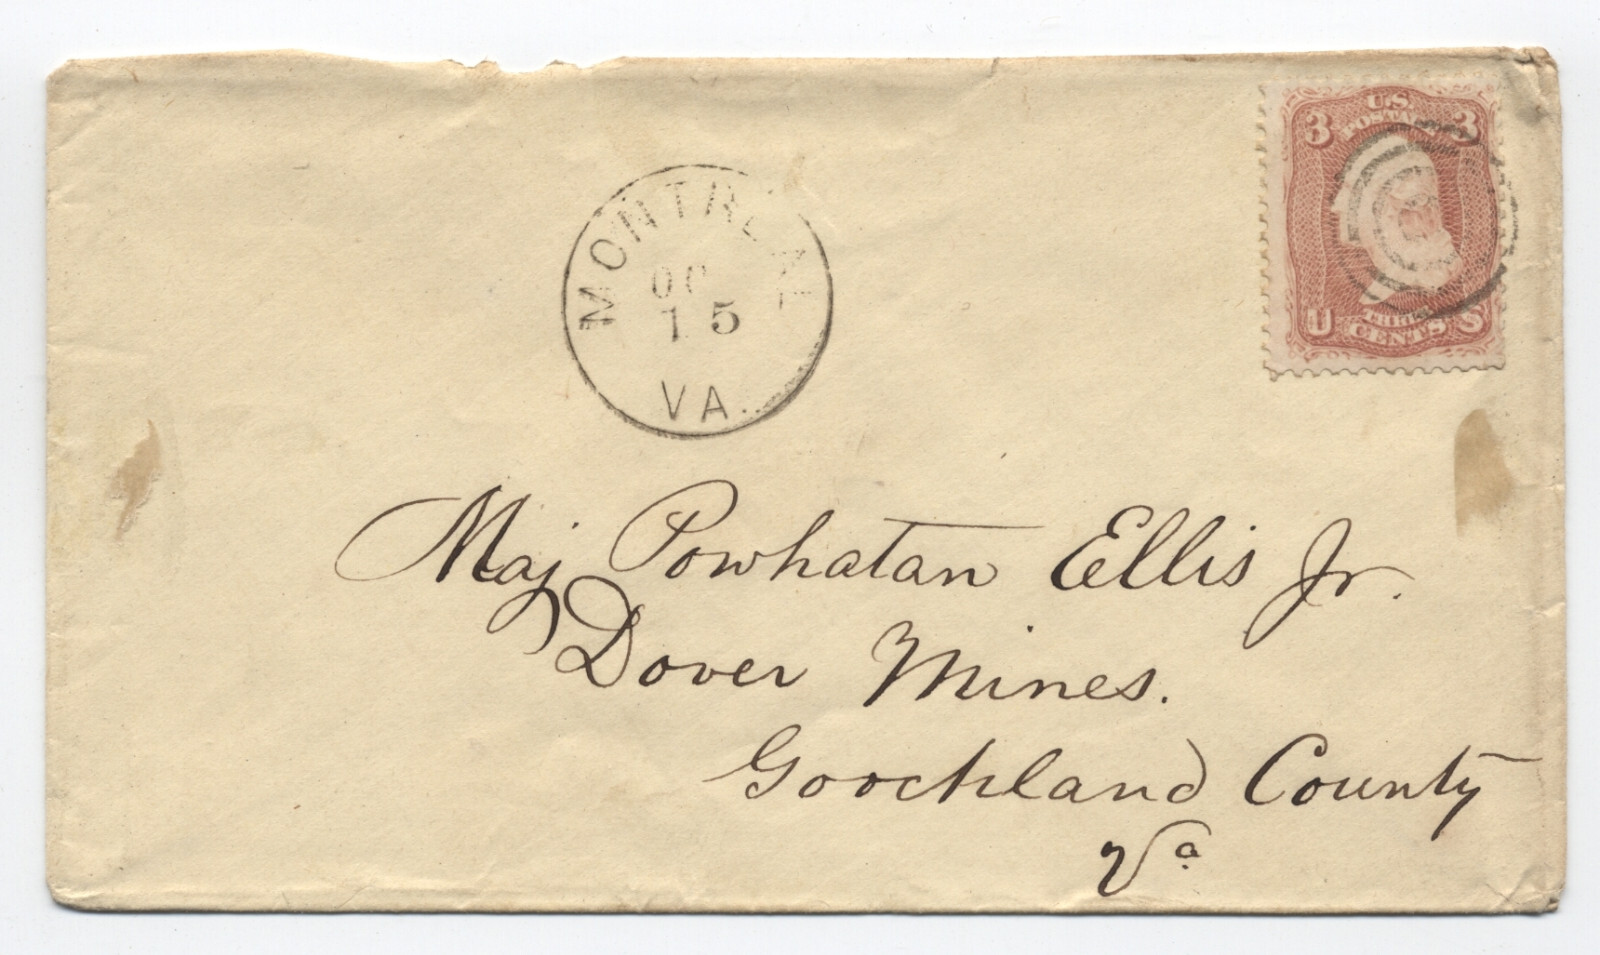 U.S.
POSTAGE
3 3
MONTREAL
OC
15
VA.
THREE
U CENTS S
Maj Powhatan Ellis Jr.
Dover Mines.
Goochland County
Va